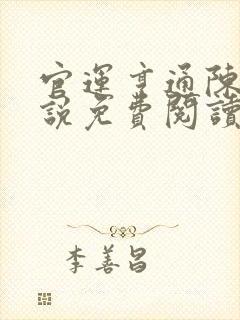 官運亨通陳
說免費閱讀
李善昌